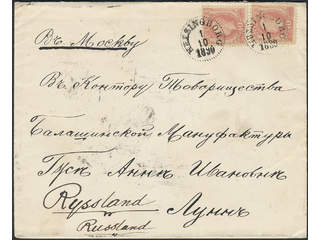 HELSINGBORG
1
10
1890
1
10
Въ Москву
Въ Контору Товарищества
Балашинской Мануфактуры
Густ Анне Ивановне
Ryssland Луннъ
Russland